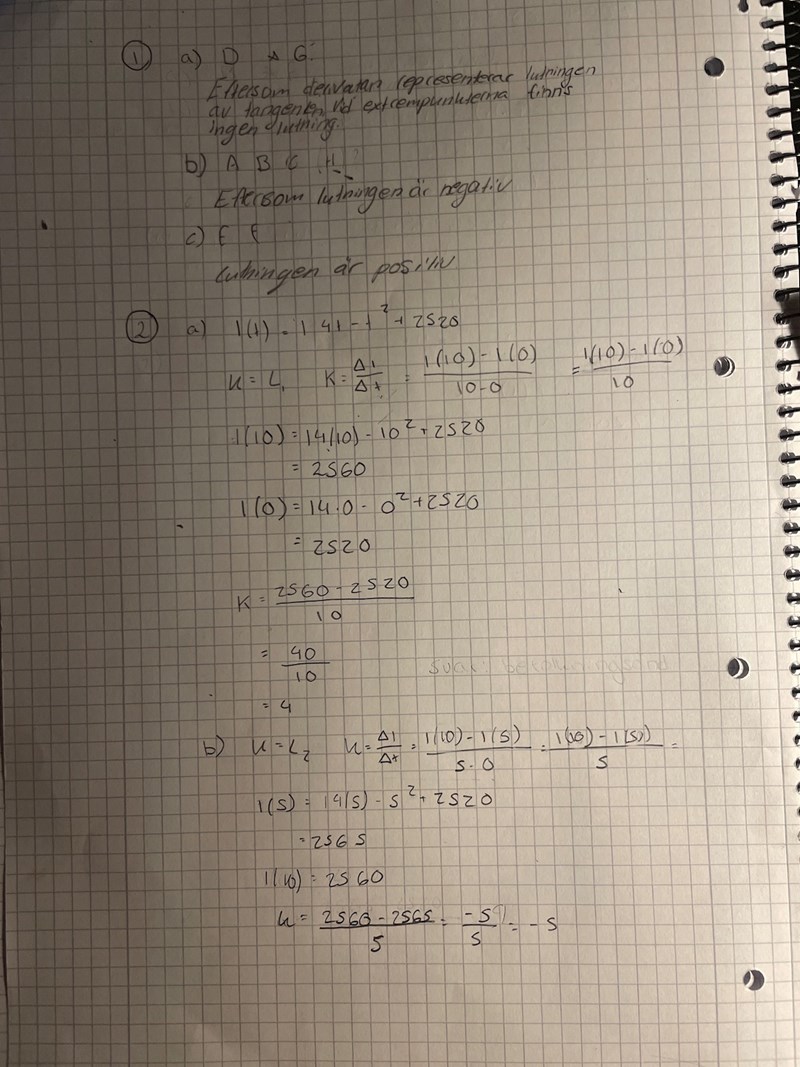 ① a) D & G.
Eftersom derivatan representerar lutningen
av tangenten vid extrempunkterna finns
ingen lutning.
b) A B C H
Eftersom lutningen är negativ
c) E F
lutningen är positiv
② a) I(t) = 14t - t² + 2520
K = L₁ K = ΔI/Δt = (I(10) - I(0))/(10-0) = (I(10) - I(0))/10
I(10) = 14(10) - 10² + 2520
= 2560
I(0) = 14·0 - 0² + 2520
= 2520
K = (2560 - 2520)/10
= 40/10
= 4
b) K = L₂ K = ΔI/Δt = (I(10) - I(5))/(5-0) = (I(10) - I(5))/5 =
I(5) = 14(5) - 5² + 2520
= 2565
I(10) = 2560
K = (2560 - 2565)/5 = -5/5 = -5